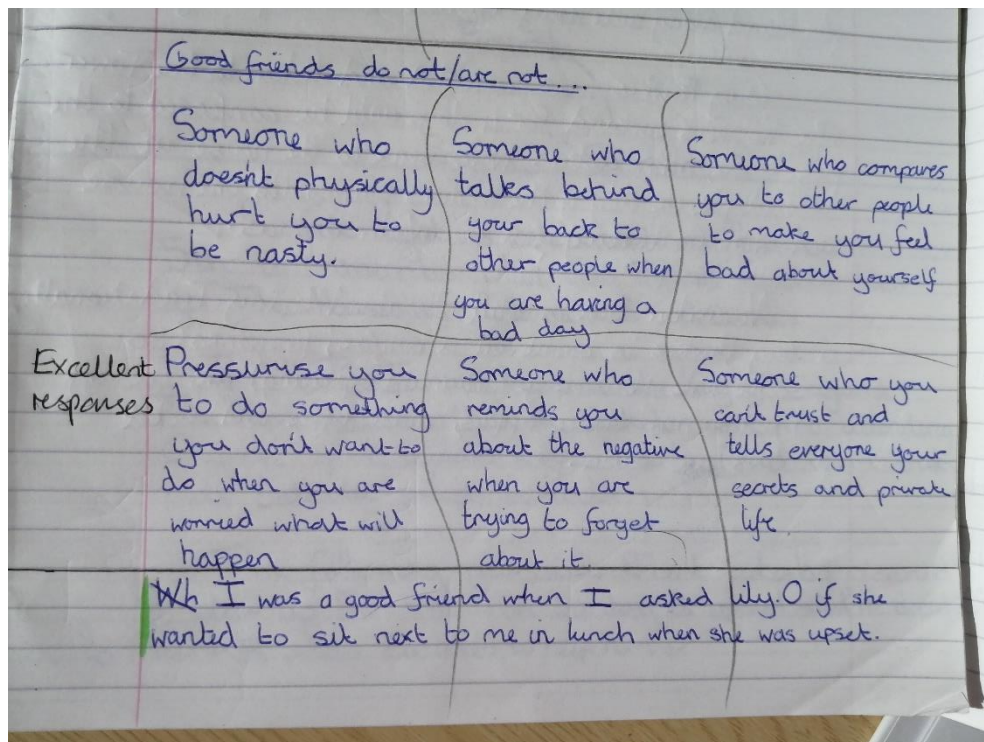 Good friends do not/are not...
Someone who
doesn't physically
hurt you to
be nasty.
Someone who
talks behind
your back to
other people when
you are having a
bad day
Someone who compares
you to other people
to make you feel
bad about yourself
Excellent
responses
Pressurise you
to do something
you don't want to
do when you are
worried what will
happen
Someone who
reminds you
about the negative
when you are
trying to forget
about it.
Someone who you
can't trust and
tells everyone your
secrets and private
life.
Wh I was a good friend when I asked lily.O if she
wanted to sit next to me in lunch when she was upset.